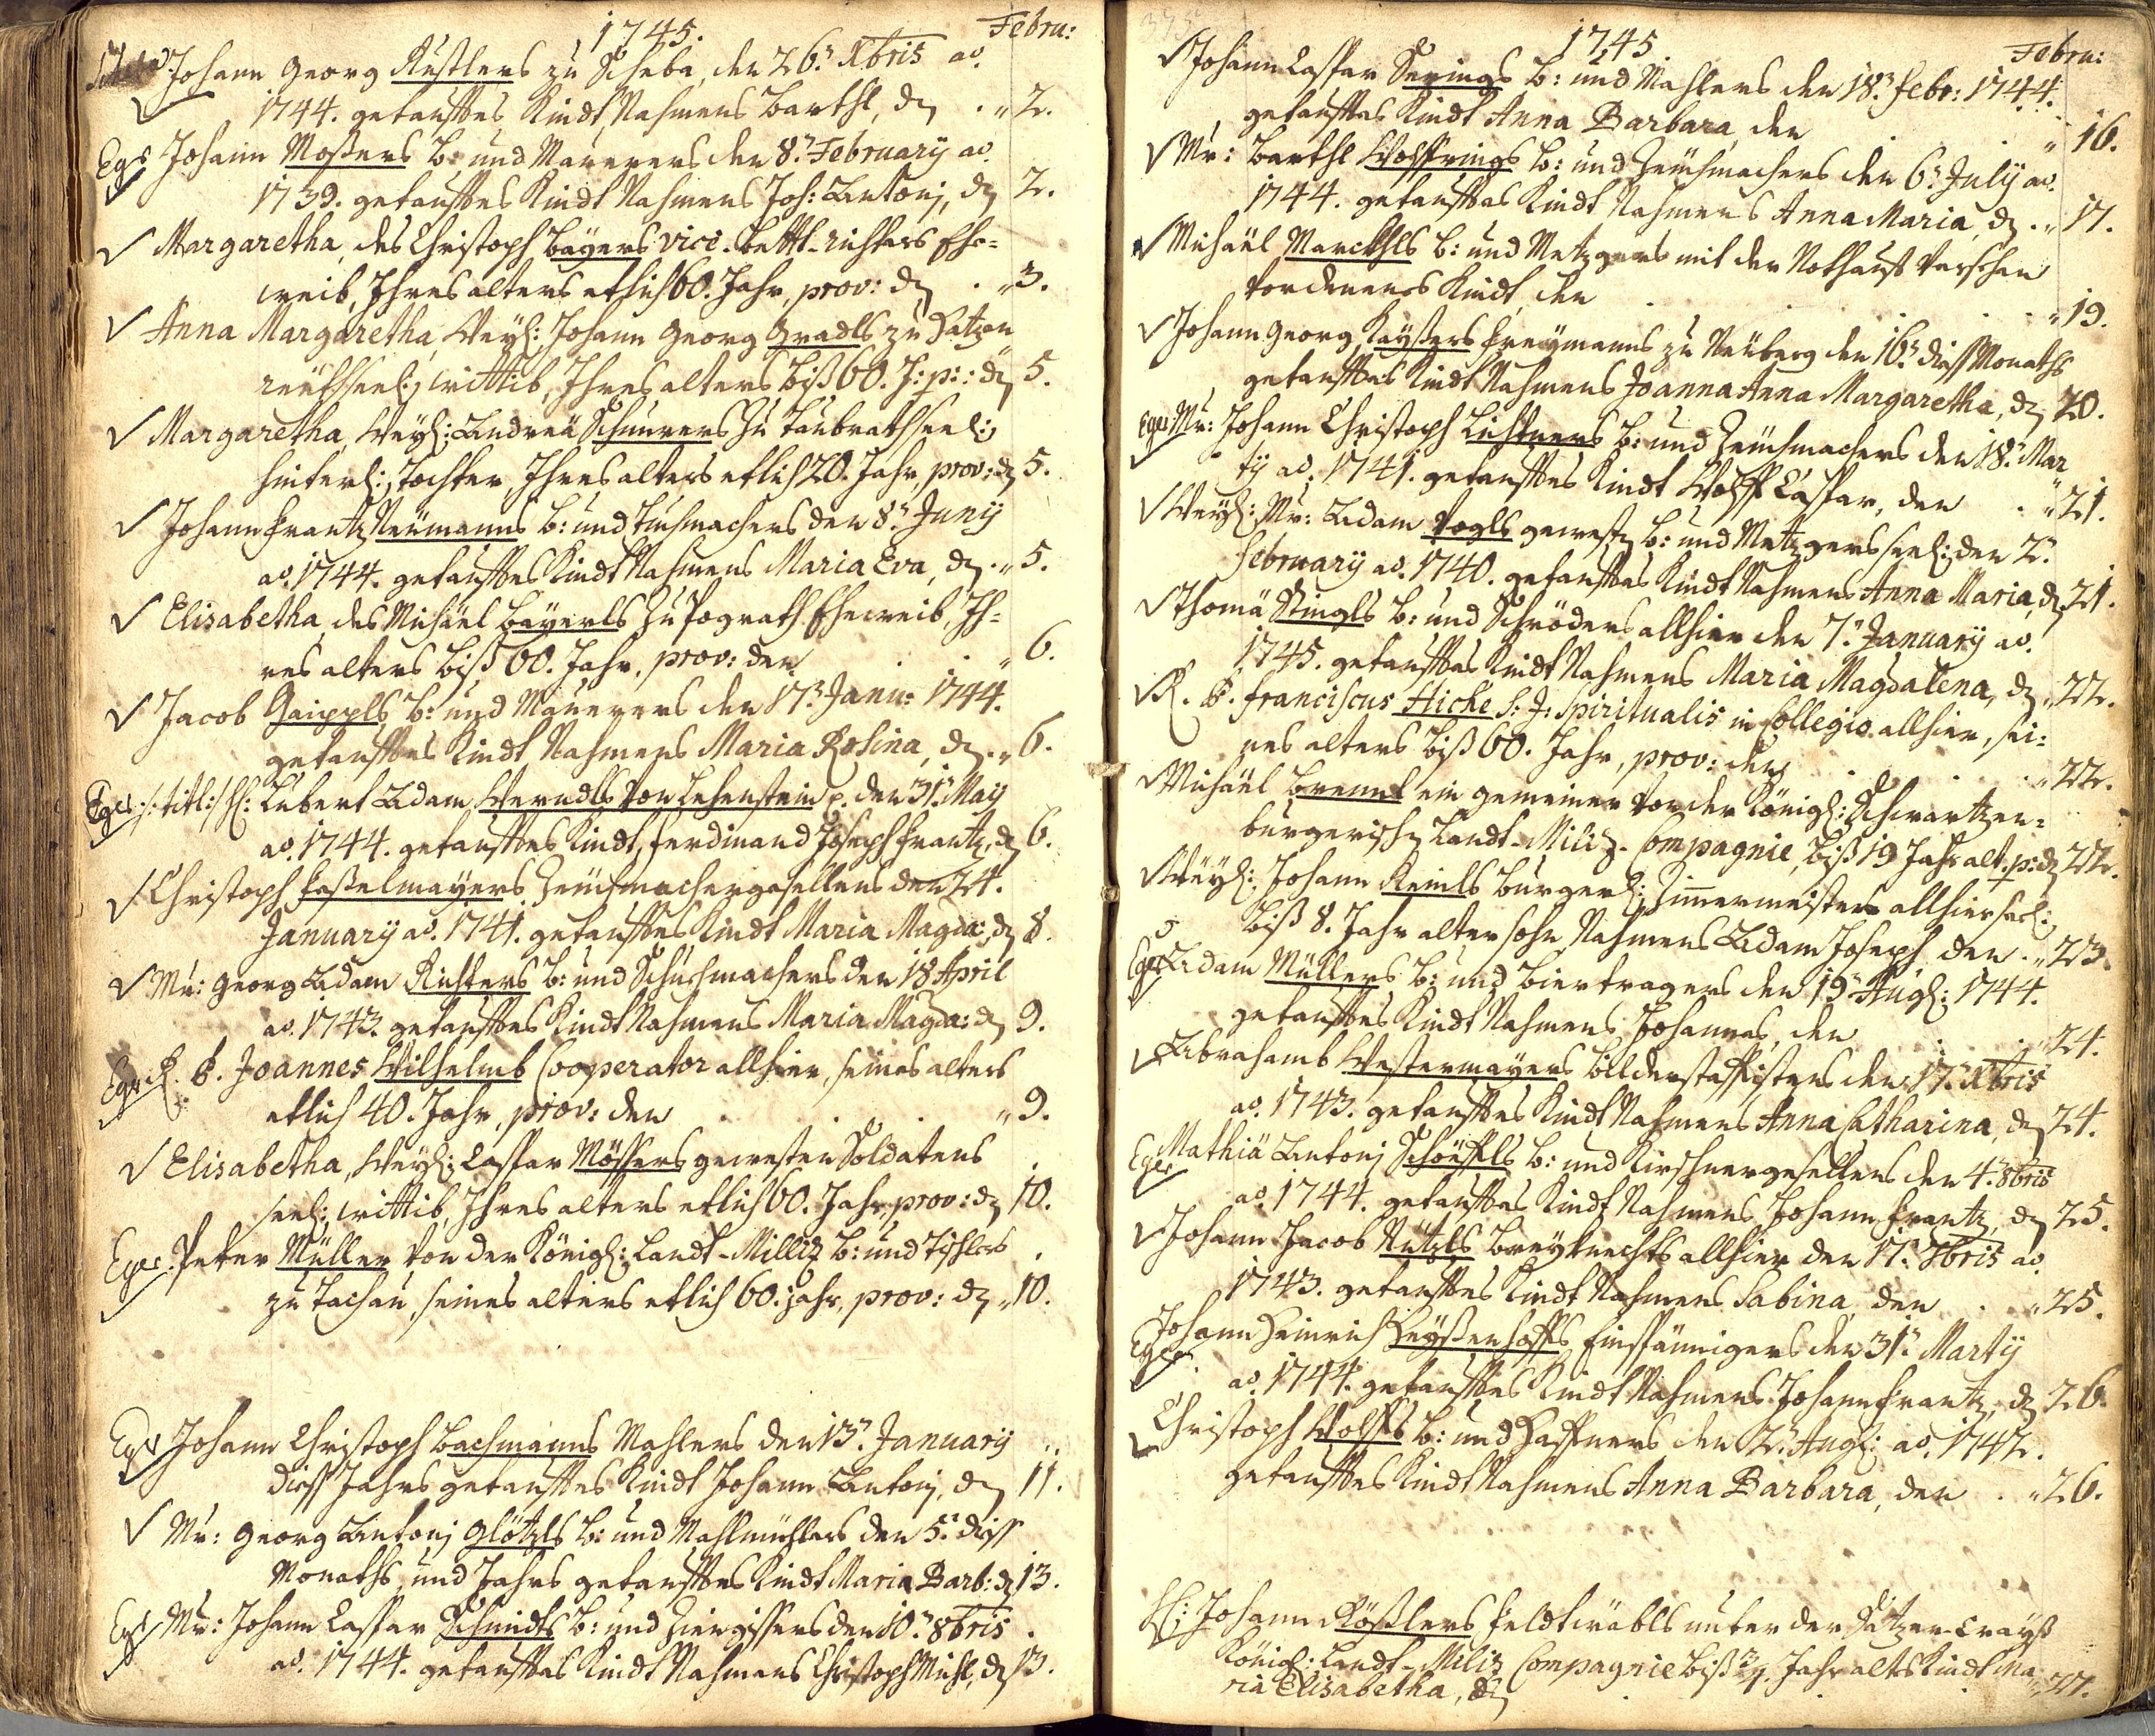 1745. Febru:
Johann Georg Küstlers zu Scheba, den 26.ten Xbris ao.
1744. getaufftes Kindt, Nahmens Barthl, den . „ 2.
Egr Johann Mosers b: und Maurers den 8.ten February ao.
1739. getaufftes Kindt Nahmens Joh: Antonj, den 2.
Margaretha, des Christoph Bayers vice-bettl-richters Ehe=
weib, Ihres alters etlich 60. Jahr, prov: den . „ 3.
Anna Margaretha, Weyl: Johann Georg Gradls zu Katzen
reüth seel: wittib, Ihres alters biß 60. J: p:: den 5.
Margaretha, Weyl: Andreä Schnurers zu Taubrath seel:
hinterl: Tochter, Ihres alters etlich 20. Jahr, prov: den 5.
Johann Frantz Neümanns b: und Tuchmachers den 8.ten Juny
ao. 1744. getaufftes Kindt Nahmens Maria Eva, den . „ 5.
Elisabetha, des Michäel Bayerls zu Pograth Eheweib, Ih=
res alters biß 60. Jahr, prov: den . . „ 6.
Jacob Gaippls b: und Maurers den 17.ten Janu: 1744.
getaufftes Kindt, Nahmens Maria Rosina, den . „ 6.
Egr /: titl: / H: Lubert Adam Werndls von Lehenstein p. den 31.ten May
ao. 1744. getaufftes Kindt, Ferdinand Joseph Frantz, den 6.
Christoph Haselmayers Zeüchmachergesellens den 24.
January ao. 1741. getaufftes Kindt Maria Magda: den 8.
Mr: Georg Adam Richters b: und Schuchmachers den 18 April
ao. 1743. getaufftes Kindt Nahmens Maria Magda: den 9.
Egr R. P. Joannes Wilhelmb Cooperator allhier, seines alters
etlich 40. Jahr, prov: den . . . „ 9.
Elisabetha, Weyl: Caspar Mössers gewesten Soldatens
seel: wittib, Ihres alters etlich 60. Jahr, prov: den 10.
Egr: Peter Müller von der Königl: Landt-Milliz b: und Tischlers
zu Tachau, seines alters etlich 60. jahr, prov: den „ 10.
Egr Johann Christoph Bachmanns Mahlers den 13.ten January
dieß Jahrs getaufftes Kindt Johann Antonj, den 11.
Mr: Georg Antonj Glötzls b: und Mahlmühlers den 5.ten dieß
Monaths, und Jahrs getaufftes Kindt Maria Barb: den 13.
Egr Mr: Johann Caspar Schmidts b: und Zinngissers den 10.ten 8bris
ao. 1744. getaufftes Kindt Nahmens Christoph Michl, den 13.
1745 Febru:
Johann Caspar Serings b: und Mahlers den 18.ten Febr: 1744.
getaufftes Kindt Anna Barbara, den . . „ 16.
Mr: Barthl Wolfrings b: und Zeüchmachers den 6.ten July ao.
1744. getaufftes Kindt Nahmens Anna Maria, den . „ 17.
Michäel Marckhls b: und Metzgers mit der Nothauff versehen
vordenens Kindt, den . . . „ 19.
Johann Georg Kaysers Freymanns zu Neüberg den 16.ten dieß Monaths
getaufftes Kindt Nahmens Joanna Anna Margaretha, den 20.
Egr Mr: Johann Christoph Lichtners b: und Zeüchmachers den 18.ten Mar
ty ao. 1741. getaufftes Kindt Wolff Caspar, den . „ 21.
Weyl: Mr: Adam Vogls gewesten b: und Metzgers seel: den 2.ten
February ao. 1740. getaufftes Kindt Nahmens Anna Maria, den 21.
Thomä Stingls b: und Schröders allhier den 7.ten January ao.
1745. getaufftes Kindt Nahmens Maria Magdalena, den „ 22.
R. P. Franciscus Hicke S: J: Spiritualis in Collegio allhier, sei=
nes alters biß 60. Jahr, prov: den . . „ 22.
Michäel Brennl ein gemeiner von der Königl: Schwartzen=
burgerischen Landt-Miliz-Compagnie, biß 19 Jahr alt p: den 22.
Weyl: Johann Reinls burgerl: Zimmermeisters allhier seel:
biß 8. Jahr alter sohn Nahmens Adam Joseph den . „ 23.
Egr Adam Müllers b: und biertragers den 19.ten Augl: 1744.
getaufftes Kindt Nahmens Johannes, den . . „ 24.
Abrahamb Westermayers bilderstaffirers den 17.ten Xbris
ao. 1743. getaufftes Kindt Nahmens Anna Catharina, den 24.
Egr Mathiä Antonj Schönffls b: und Kirschnergesellens den 4.ten 8bris
ao. 1744. getaufftes Kindt Nahmens Johann Frantz, den 25.
Johann Jacob Nützls breyknechts allhier den 17.ten 8bris ao.
1743. getaufftes Kindt Nahmens Sabina, den . „ 25.
Egr Johann Heinrich Heyßenhoffs Einspännigers den 31.ten Marty
ao. 1744. getaufftes Kindt Nahmens Johann Frantz, den 26.
Christoph Wolffs b: und Haffners den 2.ten Augl: ao. 1742.
getaufftes Kindt Nahmens Anna Barbara, den . „ 26.
H: Johann Rößlers Feldtwäbls unter der Satzer-Crayß
Königl: Landt-Miliz Compagnie biß 3/4. Jahr altes Kindt Ma
ria Elisabetha, den . . . „ 27.